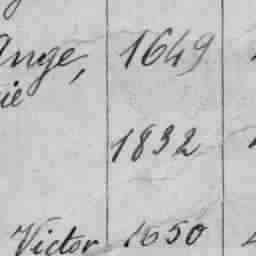 Ange, 1649
ie
1832
Victor 1650